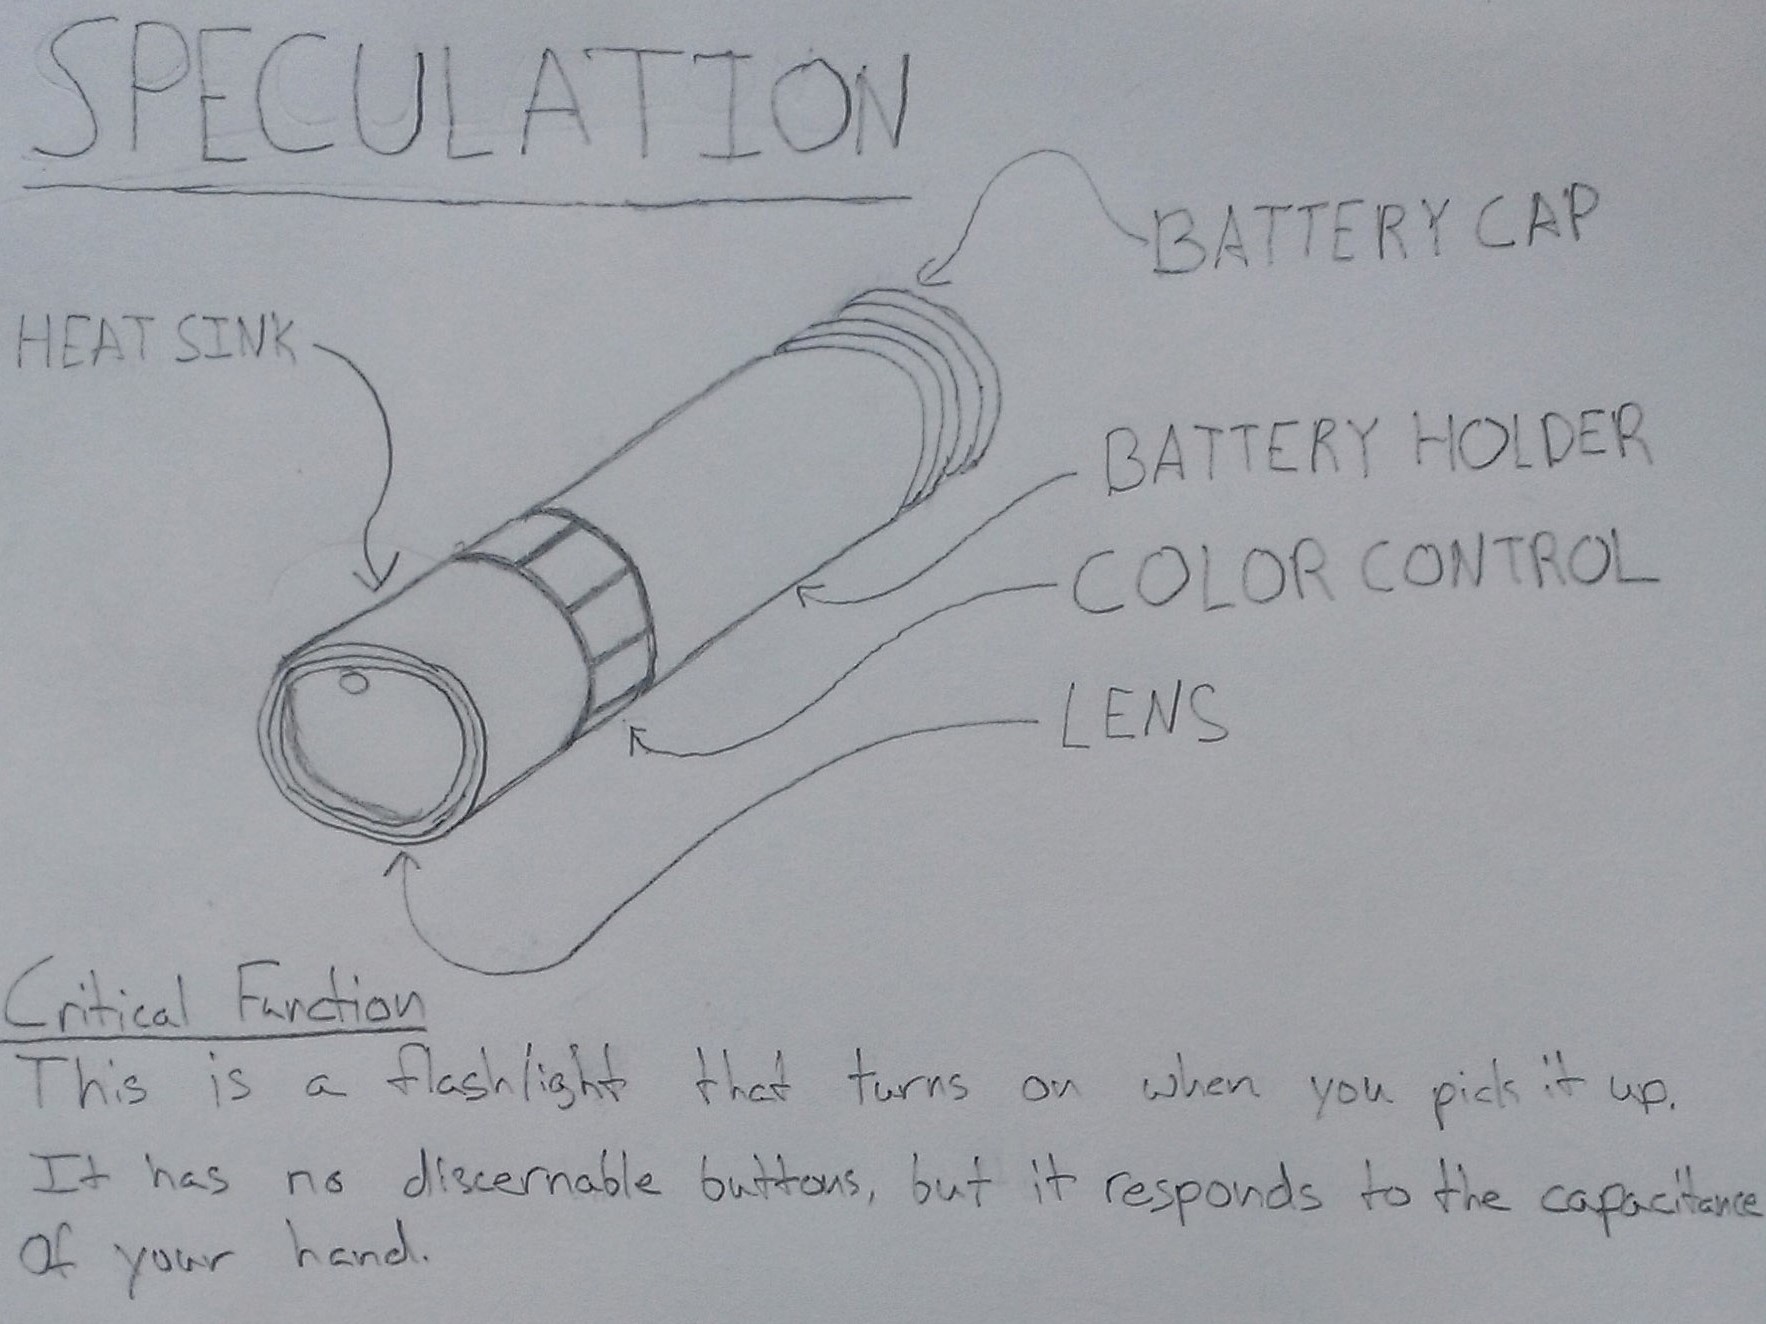 SPECULATION
BATTERY CAP
HEAT SINK
BATTERY HOLDER
COLOR CONTROL
LENS
Critical Function
This is a flashlight that turns on when you pick it up.
It has no discernable buttons, but it responds to the capacitance
of your hand.